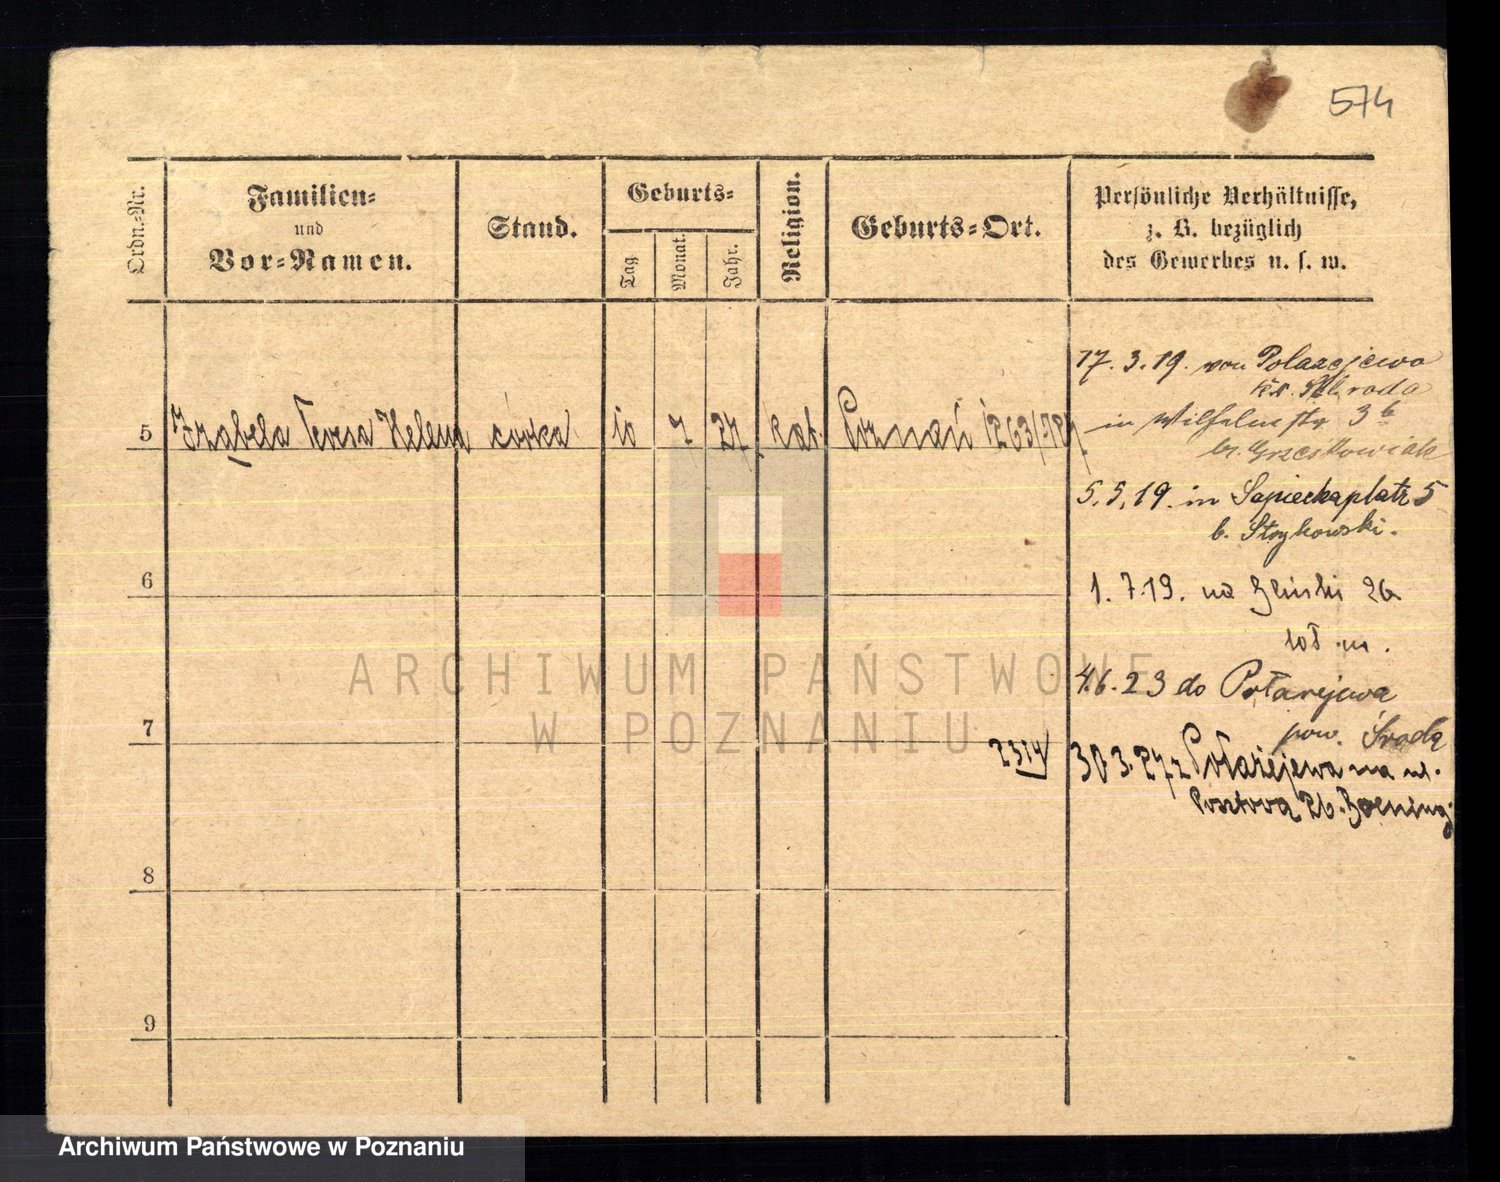 574
Ordn.-Nr.
Familien-
und
Vor-Namen.
Stand.
Geburts-
Tag
Monat.
Jahr.
Religion.
Geburts-Ort.
Persönliche Verhältnisse,
z. B. bezüglich
des Gewerbes u. s. w.
5 Izabela Teresa Helena córka 10 7 27 kat. Poznań 1263/
17. 3. 19. von Polazejewo
Kr. Schroda
in Wilhelmstr 3b
b. Grzeskowiak
5. 5. 19. in Sapiechaplatz 5
b. Strykowski.
6
1. 7. 19. na 26
lok. m.
4. 6. 23 do Połażejewa
pow. Środa
7
2314
30 3. 27 z Połażejewa na ul.
Pocztova 26.
8
9
ARCHIWUM PAŃSTWOWE
W POZNANIU
Archiwum Państwowe w Poznaniu